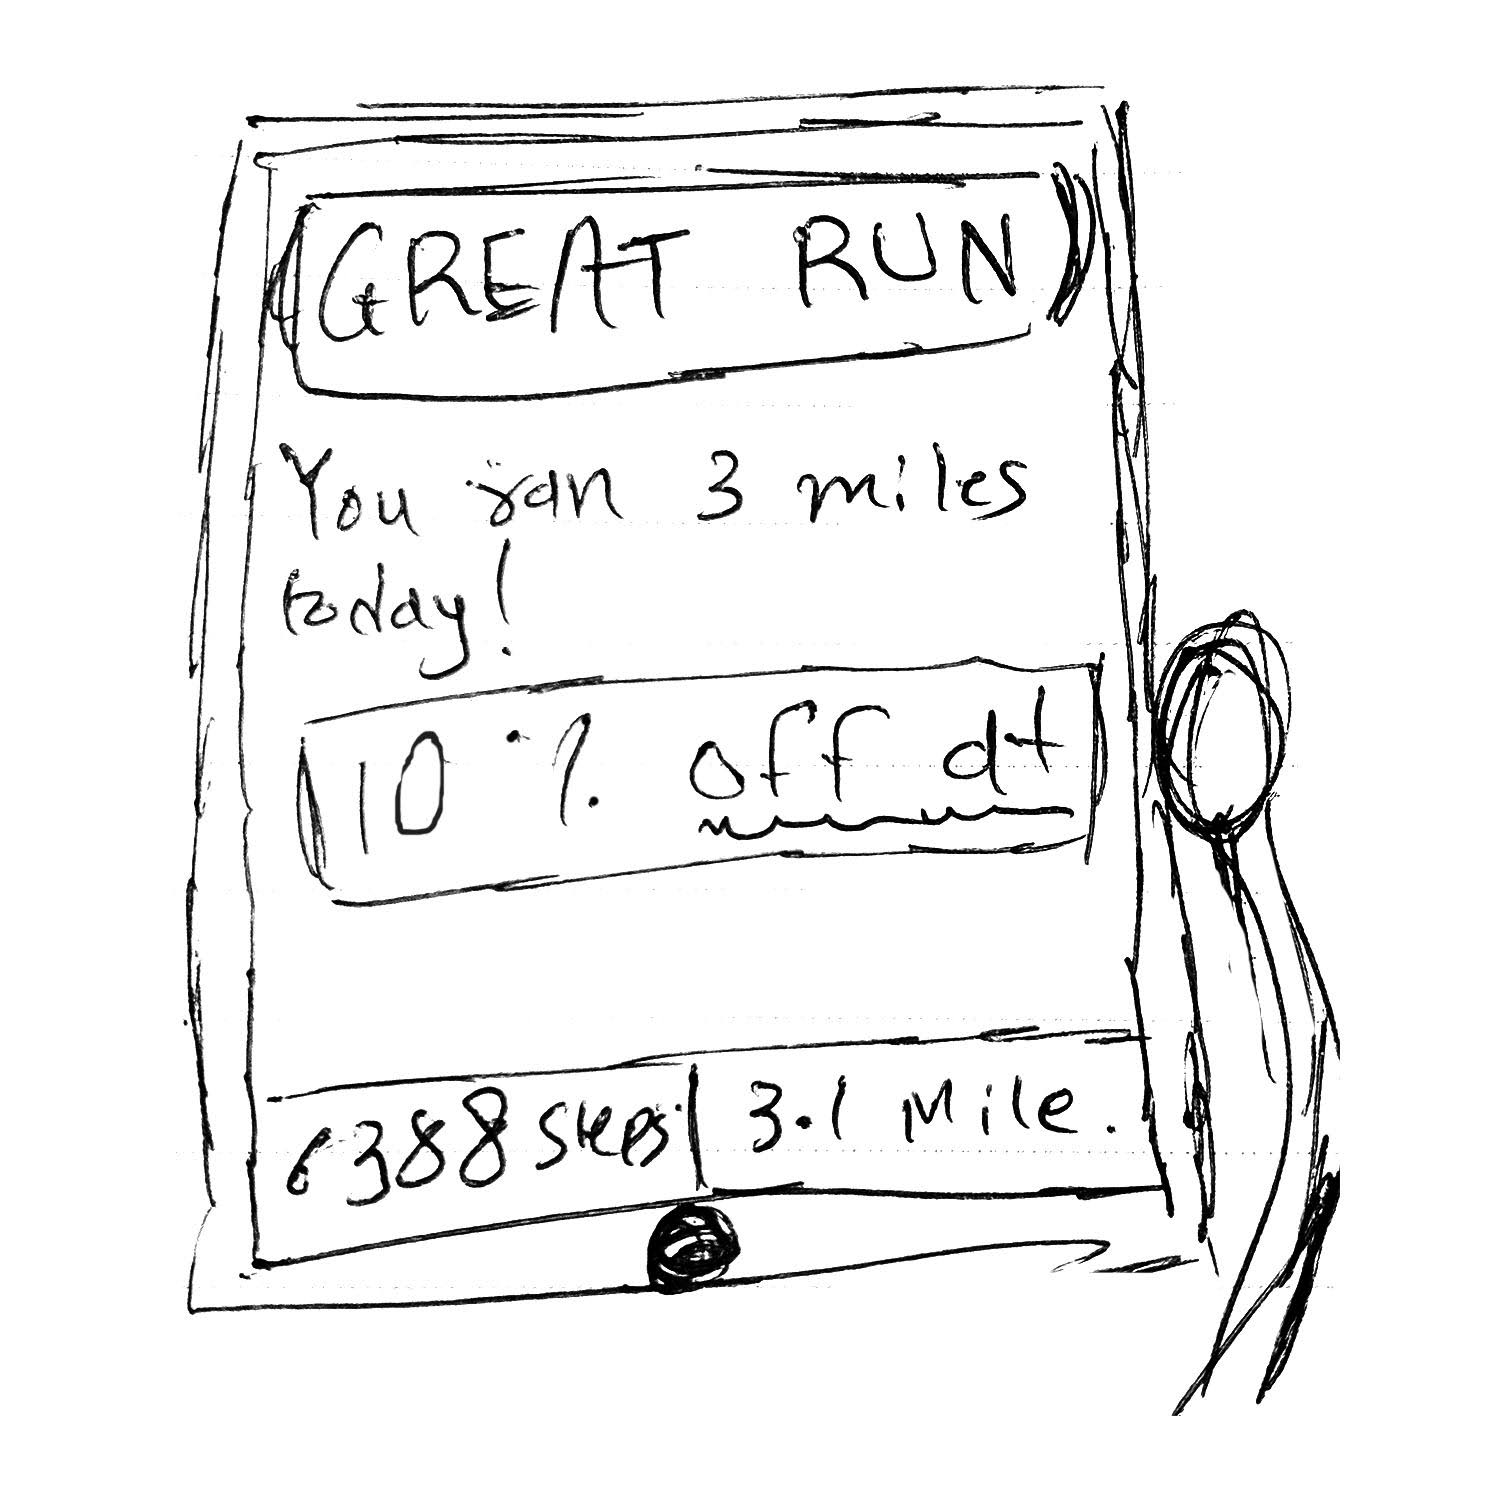 GREAT RUN
You ran 3 miles
today!
10 % off dt
6388 steps
3.1 Mile.